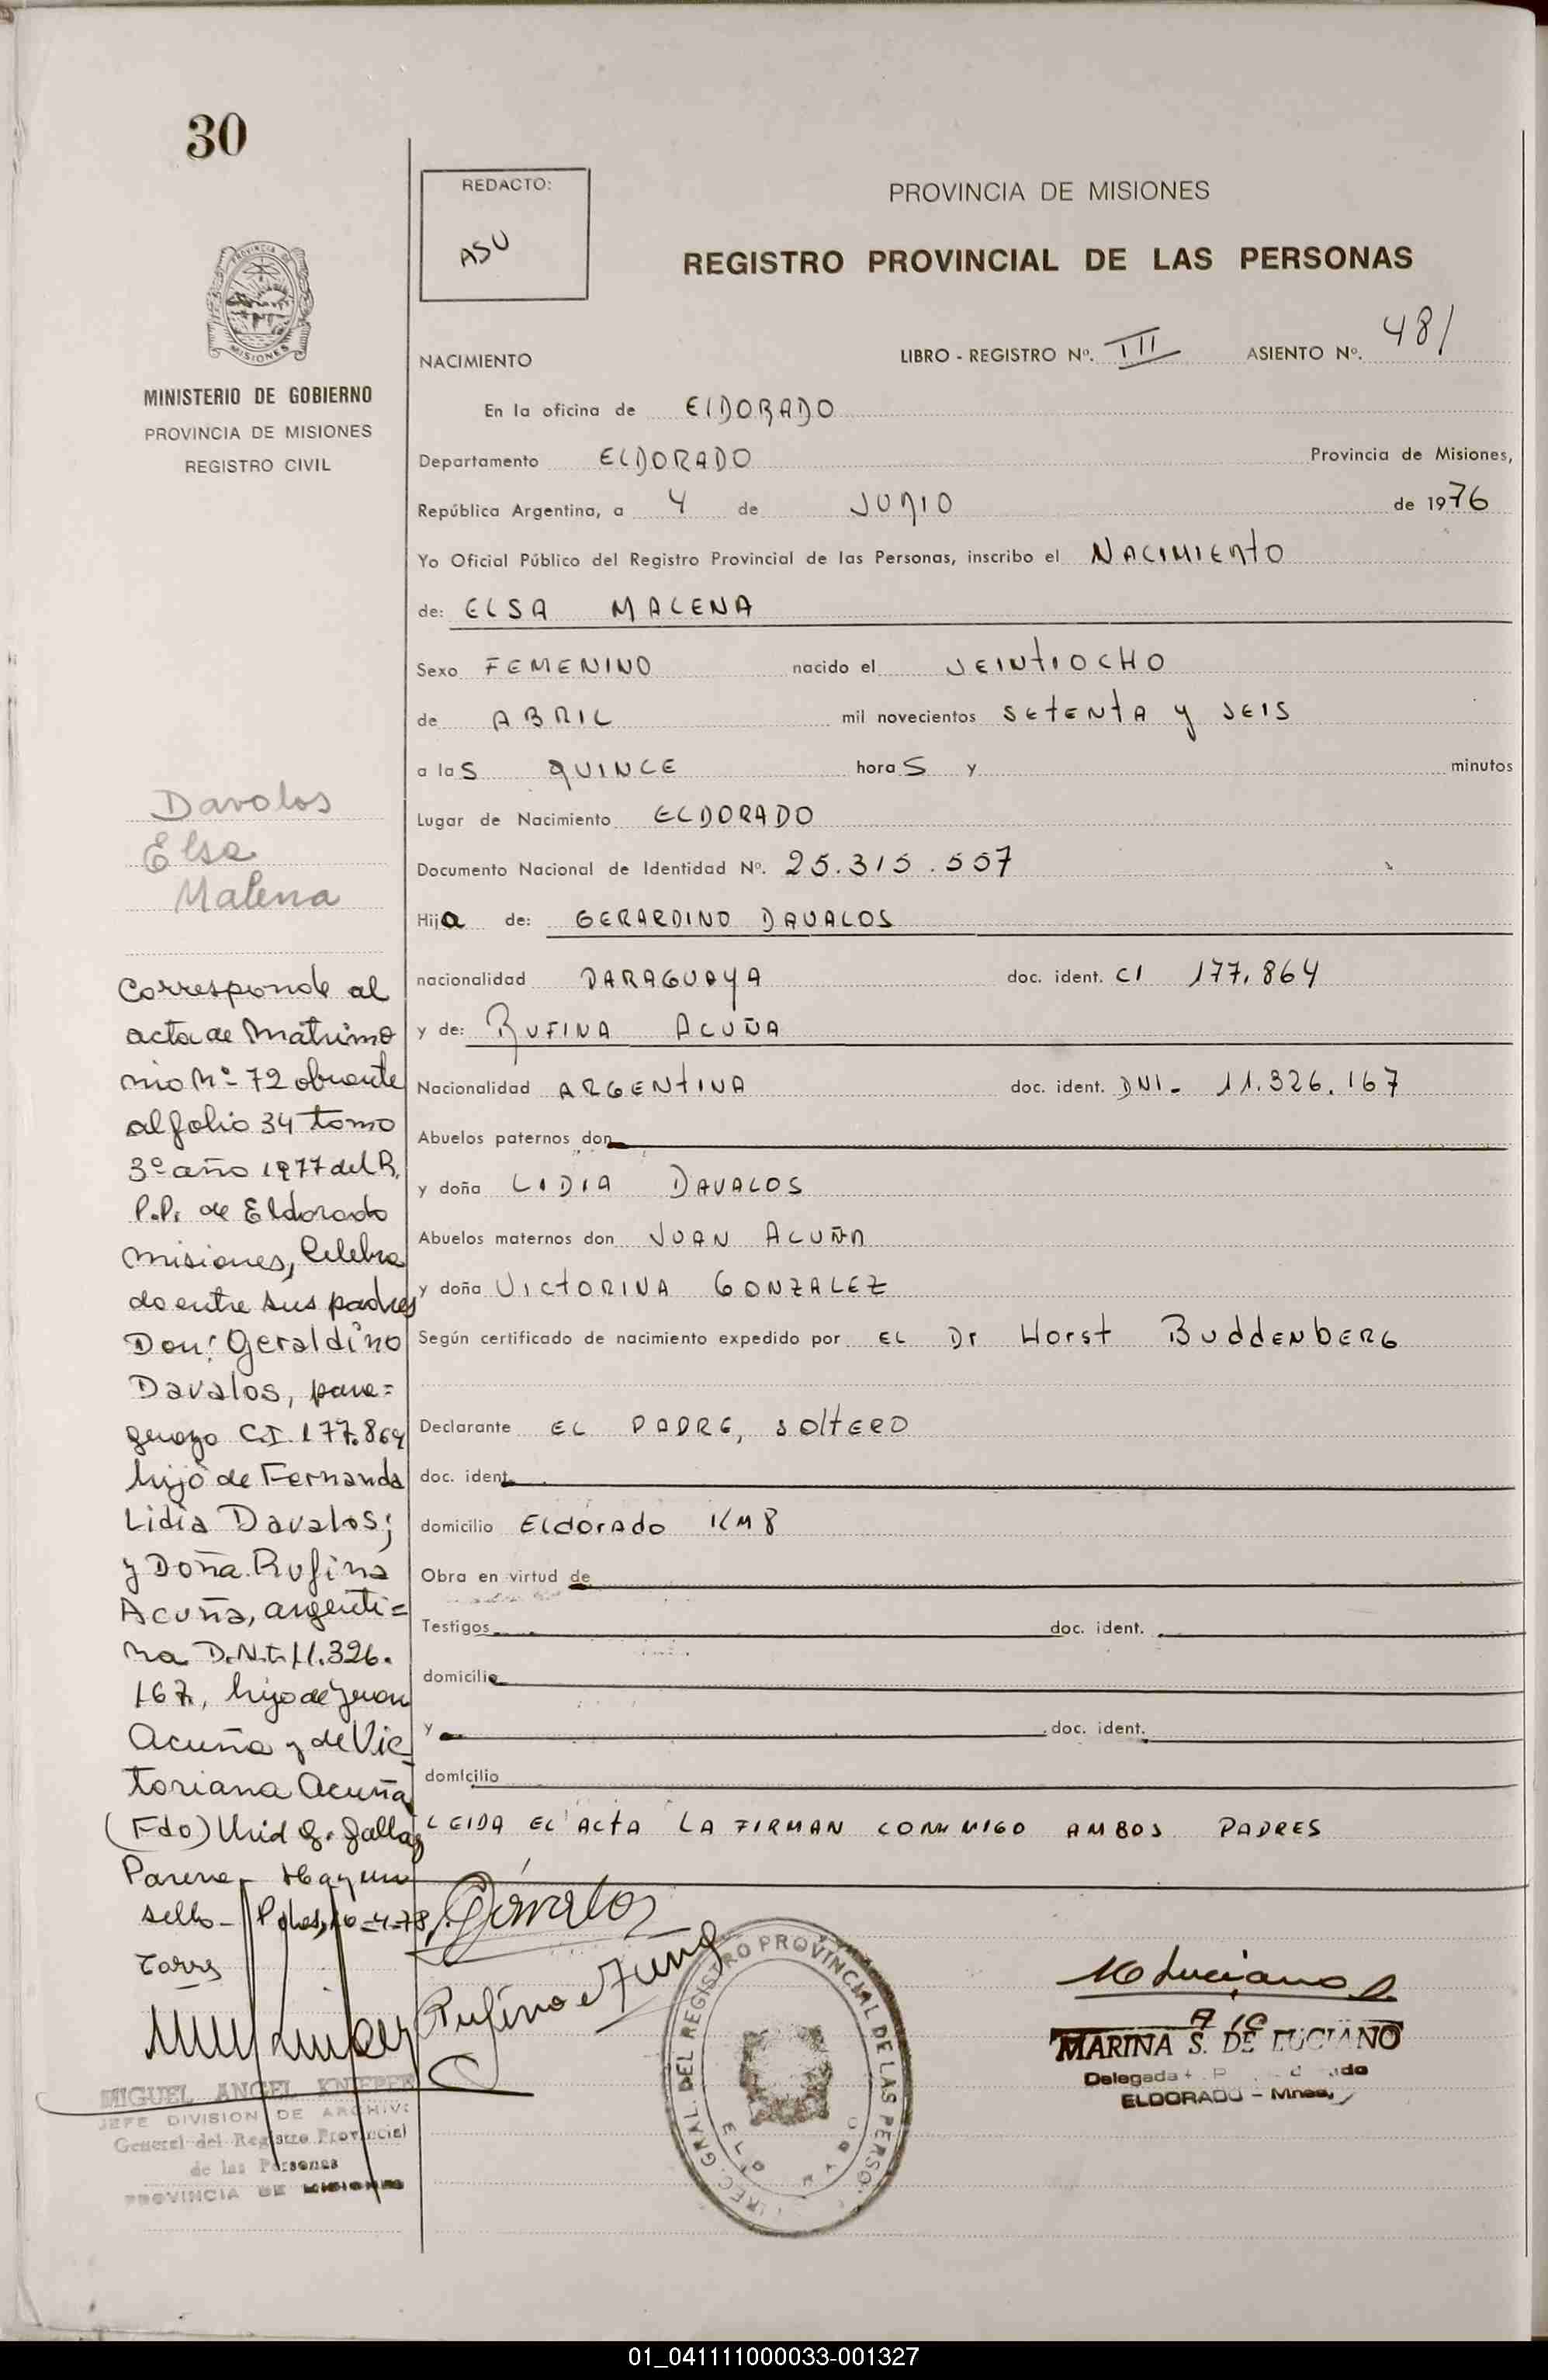 30
REDACTO:
ASU
PROVINCIA DE MISIONES
REGISTRO PROVINCIAL DE LAS PERSONAS
PROVINCIA DE
MISIONES
MINISTERIO DE GOBIERNO
PROVINCIA DE MISIONES
REGISTRO CIVIL
NACIMIENTO
LIBRO - REGISTRO Nº. III ASIENTO Nº. 481
En la oficina de ElDORADO
Departamento ELDORADO Provincia de Misiones,
República Argentina, a 4 de JUNIO de 1976
Yo Oficial Público del Registro Provincial de las Personas, inscribo el NACIMIENTO
de: ELSA MALENA
Sexo FEMENINO nacido el VEINTIOCHO
de ABRIL mil novecientos SETENTA y SEIS
a las QUINCE horas y minutos
Lugar de Nacimiento ELDORADO
Documento Nacional de Identidad Nº. 25.315.557
Hija de: GERARDINO DAVALOS
nacionalidad PARAGUAYA doc. ident. CI 177.864
y de: RUFINA ACUÑA
Nacionalidad ARGENTINA doc. ident. DNI- 11.326.167
Abuelos paternos don
y doña LIDIA DAVALOS
Abuelos maternos don JUAN ACUÑA
y doña VICTORINA GONZALEZ
Según certificado de nacimiento expedido por EL Dr Horst BuddENbERG
Declarante EL PADRE, SOLTERO
doc. ident.
domicilio ElDorado KM 8
Obra en virtud de
Testigos doc. ident.
domicilio
y doc. ident.
domicilio
LEIDA EL ACTA LA FIRMAN CONMIGO AMBOS PADRES
Davalos
Elsa
Malena
Corresponde al
acta de Matrimo
nio Nº 72 obrante
al folio 34 tomo
3º año 1977 del R.
P.P. de Eldorado
Misiones, Celebra
do entre sus padres
Don: Geraldino
Davalos, para=
guayo C.I. 177.864
hijo de Fernanda
Lidia Davalos;
y Doña Rufina
Acuña, argenti=
na D.N.I. 11.326.
167, hijo de Juan
Acuña y de Vic
toriana Acuña
(Fdo)
Hay un
sello -
Torres
MIGUEL ANGEL KNIEPER
JEFE DIVISION DE ARCHIVO
General del Registro Provincial
de las Personas
PROVINCIA DE MISIONES
Rufina Acuña
GRAL. DEL REGISTRO PROVINCIAL DE LAS PERSO.
M Luciano
MARINA S. DE LUCIANO
Delegada
ELDORADO - Mnes.
01_041111000033-001327